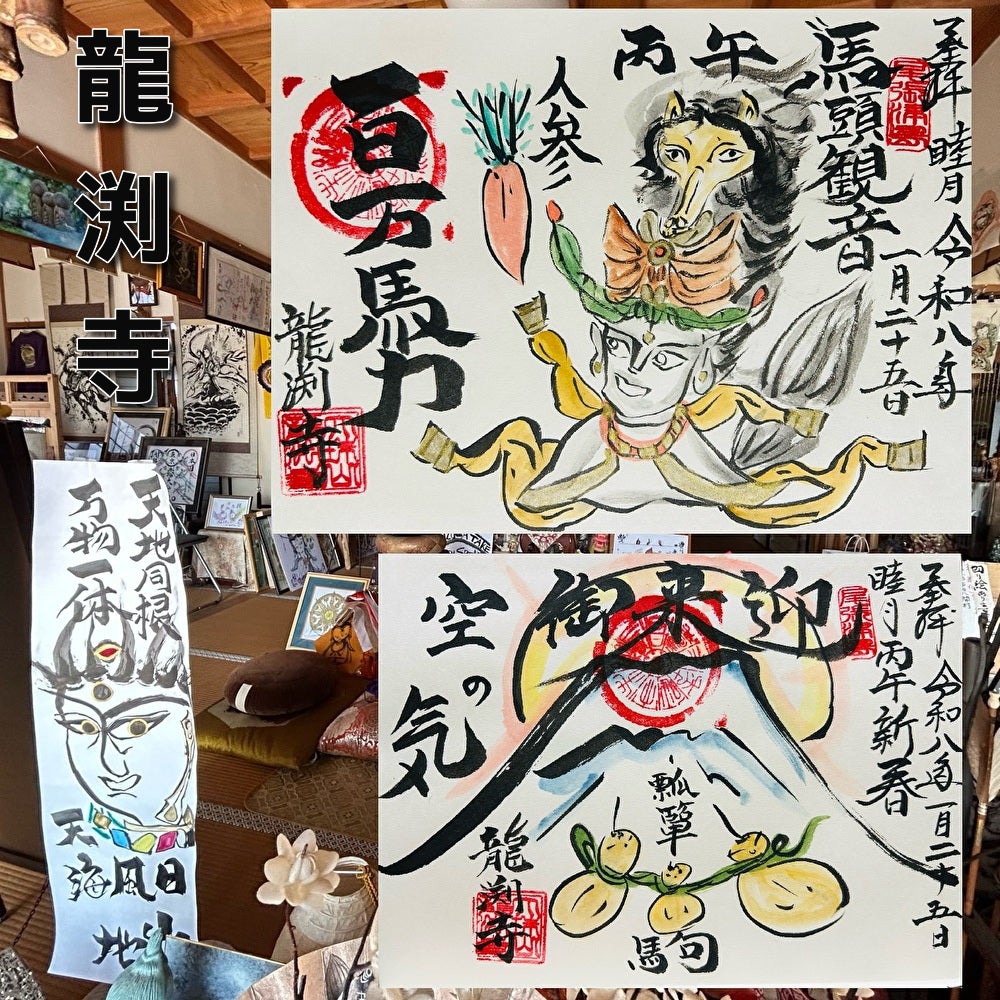 龍渕寺
奉拝 睦月 令和八年
一月二十五日
尾張津島
馬頭観音
丙午
人参
百万馬力
龍渕寺
奉拝 令和八年一月二十五日
睦月丙午新春
御来迎
空の気
瓢箪
馬句
龍渕寺
天地同根
万物一体
天
海風日
地